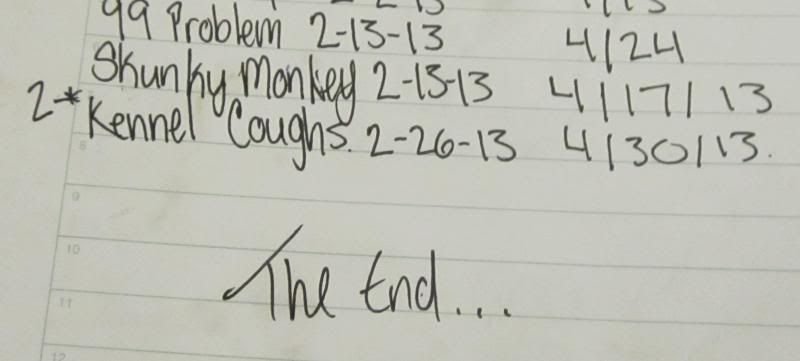 99 Problem 2-13-13 4/24
Skunky Monkey 2-13-13 4/17/13
2-* Kennel Coughs. 2-26-13 4/30/13.
8
9
The End...
10
11
12